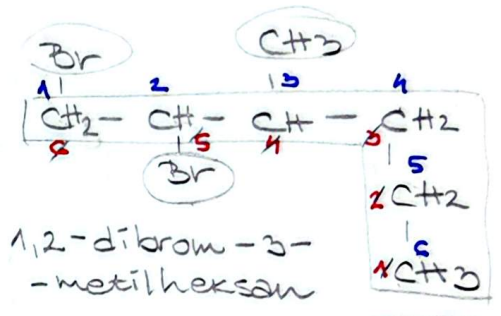 Br CH3
1 2 3 4
CH2 - CH - CH - CH2
6 5 4 3
Br 5
2 CH2
6
1 CH3
1,2-dibrom-3-
-metilheksan